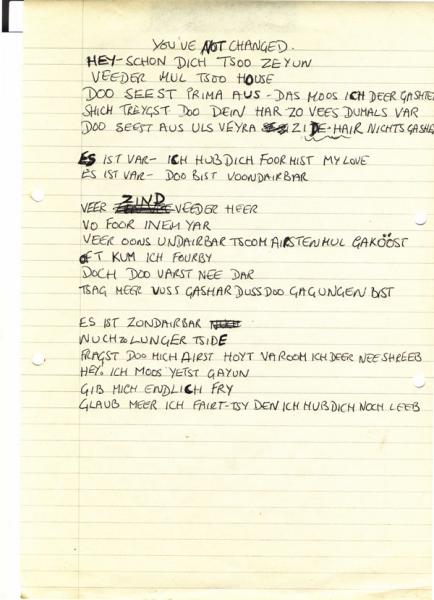 YOU'VE NOT CHANGED.
HEY-SCHON DICH TSOO ZEYUN
VEEDER MUL TSOO HOUSE
DOO SEEST PRIMA AUS - DAS MOOS ICH DEER GASHTE
SHICH TREYGST DOO DEIN HAR ZO VEES DUMALS VAR
DOO SEEST AUS ULS VEYRA ZIDE-HAIR NICHTS GASHG
ES IST VAR- ICH HUB DICH FOOR MIST MY LOVE
ES IST VAR- DOO BIST VOONDAIRBAR
VEER ZIND VEEDER HEER
VO FOOR INEM YAR
VEER OONS UNDAIRBAR TSOOM AIRSTEN MUL GAKÖÖST
OFT KUM ICH FOURBY
DOCH DOO VARST NEE DAR
TSAG MEER VUSS GASHAR DUSS DOO GAGUNGEN BIST
ES IST ZONDAIRBAR
NUCH ZO LUNGER TSIDE
FRAGST DOO MICH AIRST HOYT VAROOM ICH DEER NEE SHREEB
HEY. ICH MOOS YETST GAYUN
GIB MICH ENDLICH FRY
GLAUB MEER ICH FAIRT-TSY DEN ICH HUB DICH NOCH LEEB